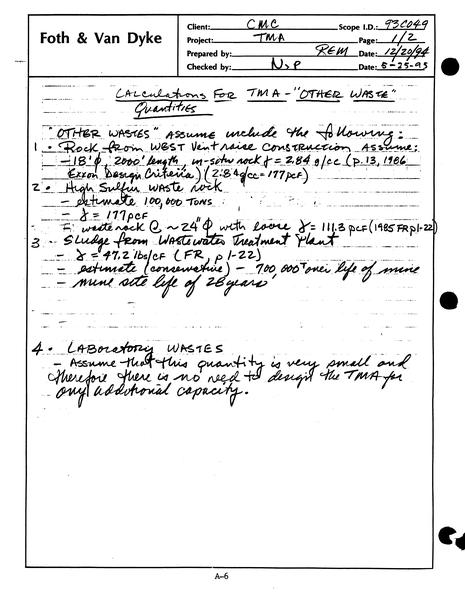 Foth & Van Dyke
Client: CMC Scope I.D.: 93C049
Project: TMA Page: 1/2
Prepared by: REM Date: 12/20/94
Checked by: Date: 5-25-95
CALCULATIONS FOR TMA - "OTHER WASTE"
Quantities
"OTHER WASTES" ASSUME include the following:
1 • Rock from WEST Vent raise CONSTRUCTION ASSUME:
- 18'ϕ, 2000' length, in-situ rock = 2.84 g/cc (p.13, 1986
Exxon Design Criteria) (2.84 g/cc = 177 pcf)
2 • High Sulfur WASTE rock
- estimate 100,000 TONS
- γ = 177 pcf
- waste rock @ ~24"ϕ with loose γ = 111.3 pcf (1985 FR p 1-22)
3 • Sludge from WASTEwater Treatment Plant
- γ = 47.2 lbs/CF (FR, p 1-22)
- estimate (conservative) - 700,000 T over life of mine
- mine site life of 28 years
4 • LABoratory WASTES
- Assume that this quantity is very small and
therefore there is no need to design the TMA for
any additional capacity.
A-6